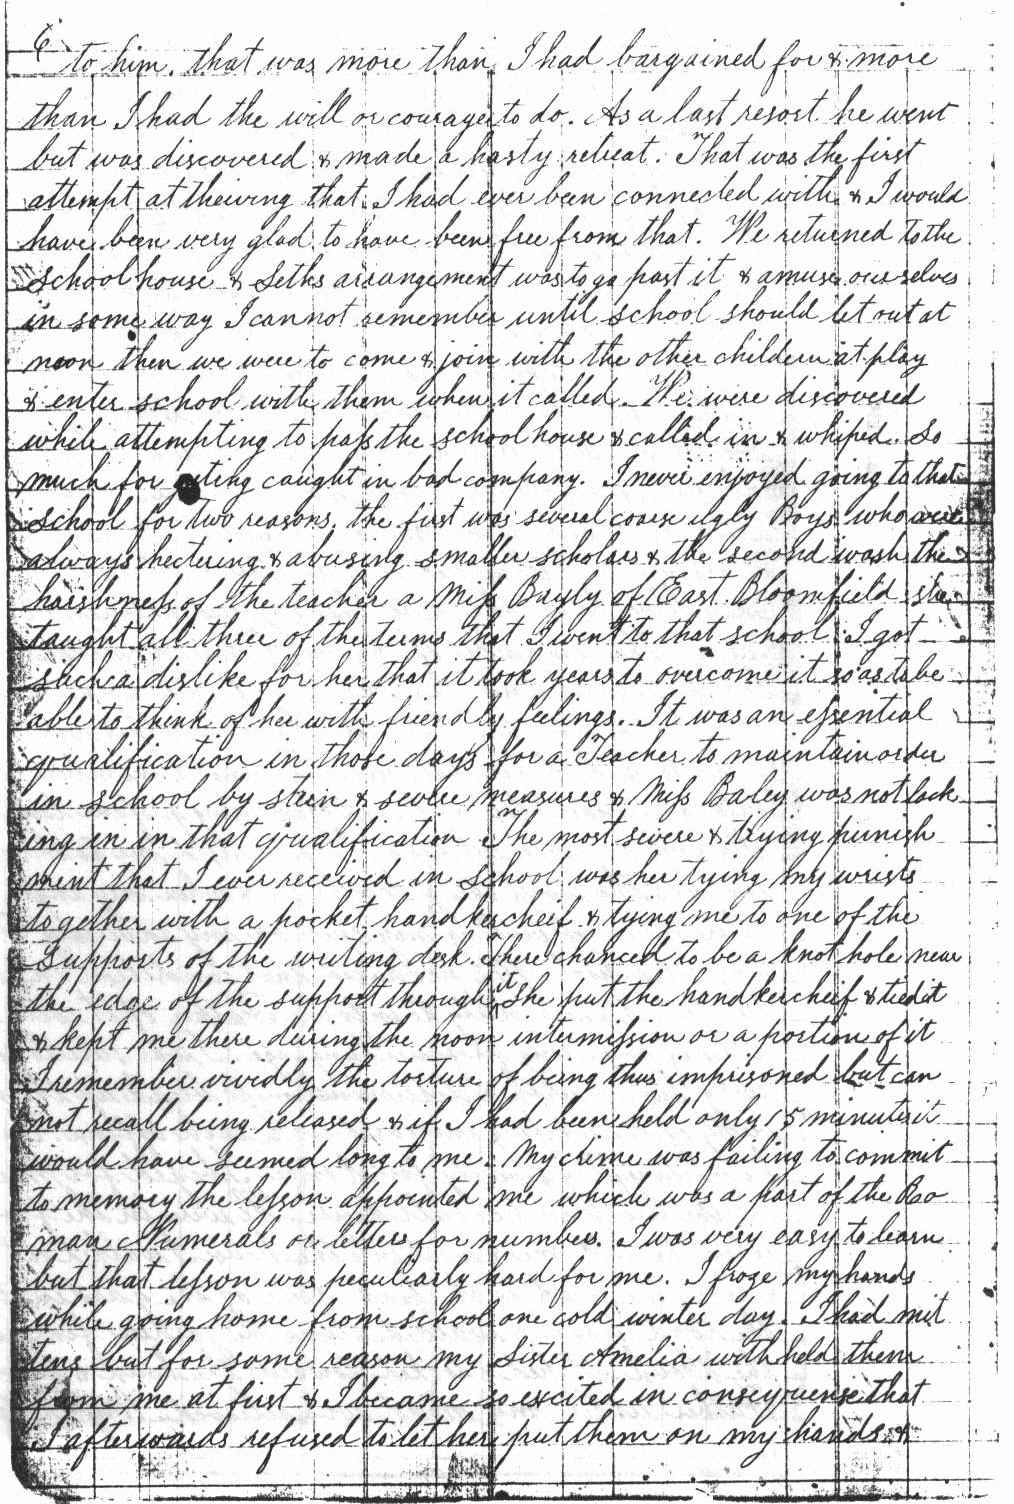 6
to him. that was more than I had bargained for & more
than I had the will or courage to do. As a last resort he went
but was discovered & made a hasty retreat. That was the first
attempt at theiving that I had ever been connected with & I would
have been very glad to have been free from that. We returned to the
school house & Seths arrangement was to go past it & amuse ourselves
in some way I cannot remember until school should let out at
noon then we were to come & join with the other childern at play
& enter school with them when it called. We were discovered
while attempting to pass the school house & called in & whiped. So
much for caught in bad company. I never enjoyed going to that
school for two reasons. the first was several coarse ugly Boys who were
always hectoring & abusing smaller scholars & the second wash the
harshness of the teacher a Miss Bayly of East Bloomfield she
taught all three of the terms that I went to that school. I got
such a dislike for her that it took years to overcome it so as to be
able to think of her with friendly feelings. It was an essential
qualification in those days for a Teacher to maintain order
in school by stern & severe measures & Miss Baley was not lack
ing in in that qualification The most severe & trying punish
ment that I ever received in school was her tying my wrists
together with a pocket handkercheif & tying me to one of the
supports of the writing desk. There chanced to be a knot hole near
the edge of the support through it she put the handkercheif & tied it
& kept me there during the noon intermission or a portion of it
I remember vividly the torture of being thus imprisoned but can
not recall being released & if I had been held only 15 minutes it
would have seemed long to me. My crime was failing to commit
to memory the lesson appointed me which was a part of the Roo
man Numerals or letters for numbers. I was very easy to learn
but that lesson was peculiarly hard for me. I froze my hands
while going home from school one cold winter day. I had mit
tens but for some reason my Sister Amelia withheld them
from me at first & I became so excited in consequense that
I afterwards refused to let her put them on my hands &